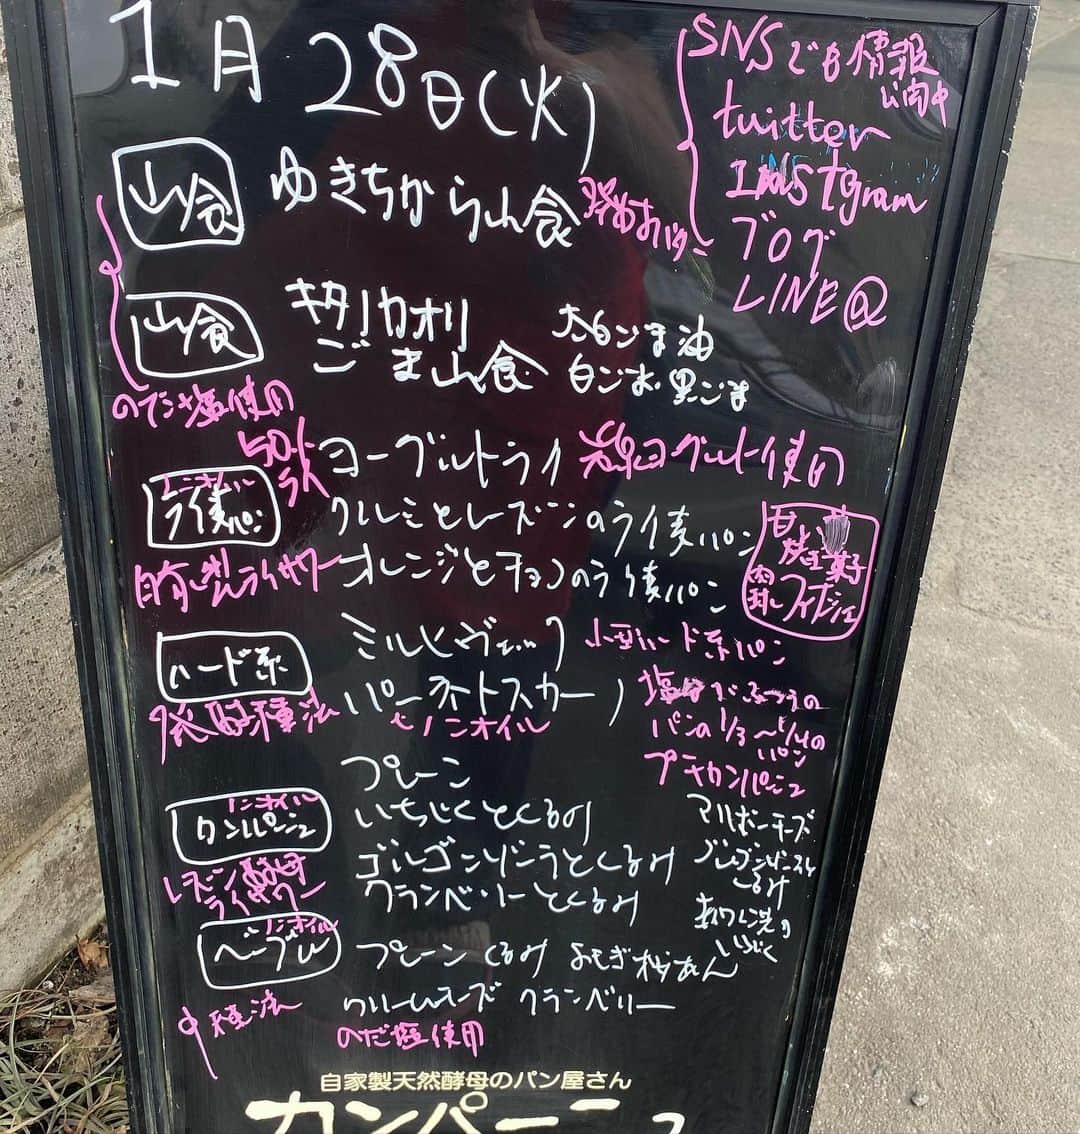 1月28日(火)
SNSでも情報
公開中
twitter
Instgram
ブログ
LINE@
山食
ゆきちから山食
発酵バター
山食
キタノカオリ
ごま山食
太白ごま油
白ごま 黒ごま
のだ塩使用
50%
ライ
ヨーグルトライ
岩泉ヨーグルト使用
ノンオイル
ライ麦パン
クルミとレーズンのライ麦パン
自家製ライサワー
オレンジとチョコのライ麦パン
甘い
焼き菓子
ハード系
ミルヒヴェック
小型ハード系パン
発酵種法
パーネトスカーノ
ノンオイル
塩分がふつうの
パンの1/3〜1/4の
パン
プチカンパーニュ
プレーン
ノンオイル
カンパーニュ
いちじくとくるみ
ゴルゴンゾーラとくるみ
クランベリーとくるみ
レーズン酵母
ライサワー
ゴルゴンゾーラと
くるみ
いちじく
ノンオイル
ベーグル
プレーン くるみ よもぎ 桜あん
クリームチーズ クランベリー
中種法
のだ塩使用
自家製天然酵母のパン屋さん
カンパーニュ